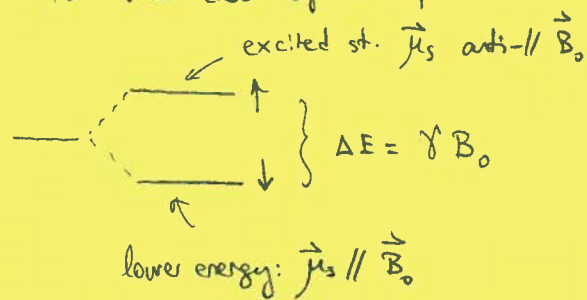 excited st. μ⃗s anti-// B⃗₀
↑
ΔE = γ B₀
↓
lower energy: μ⃗s // B⃗₀